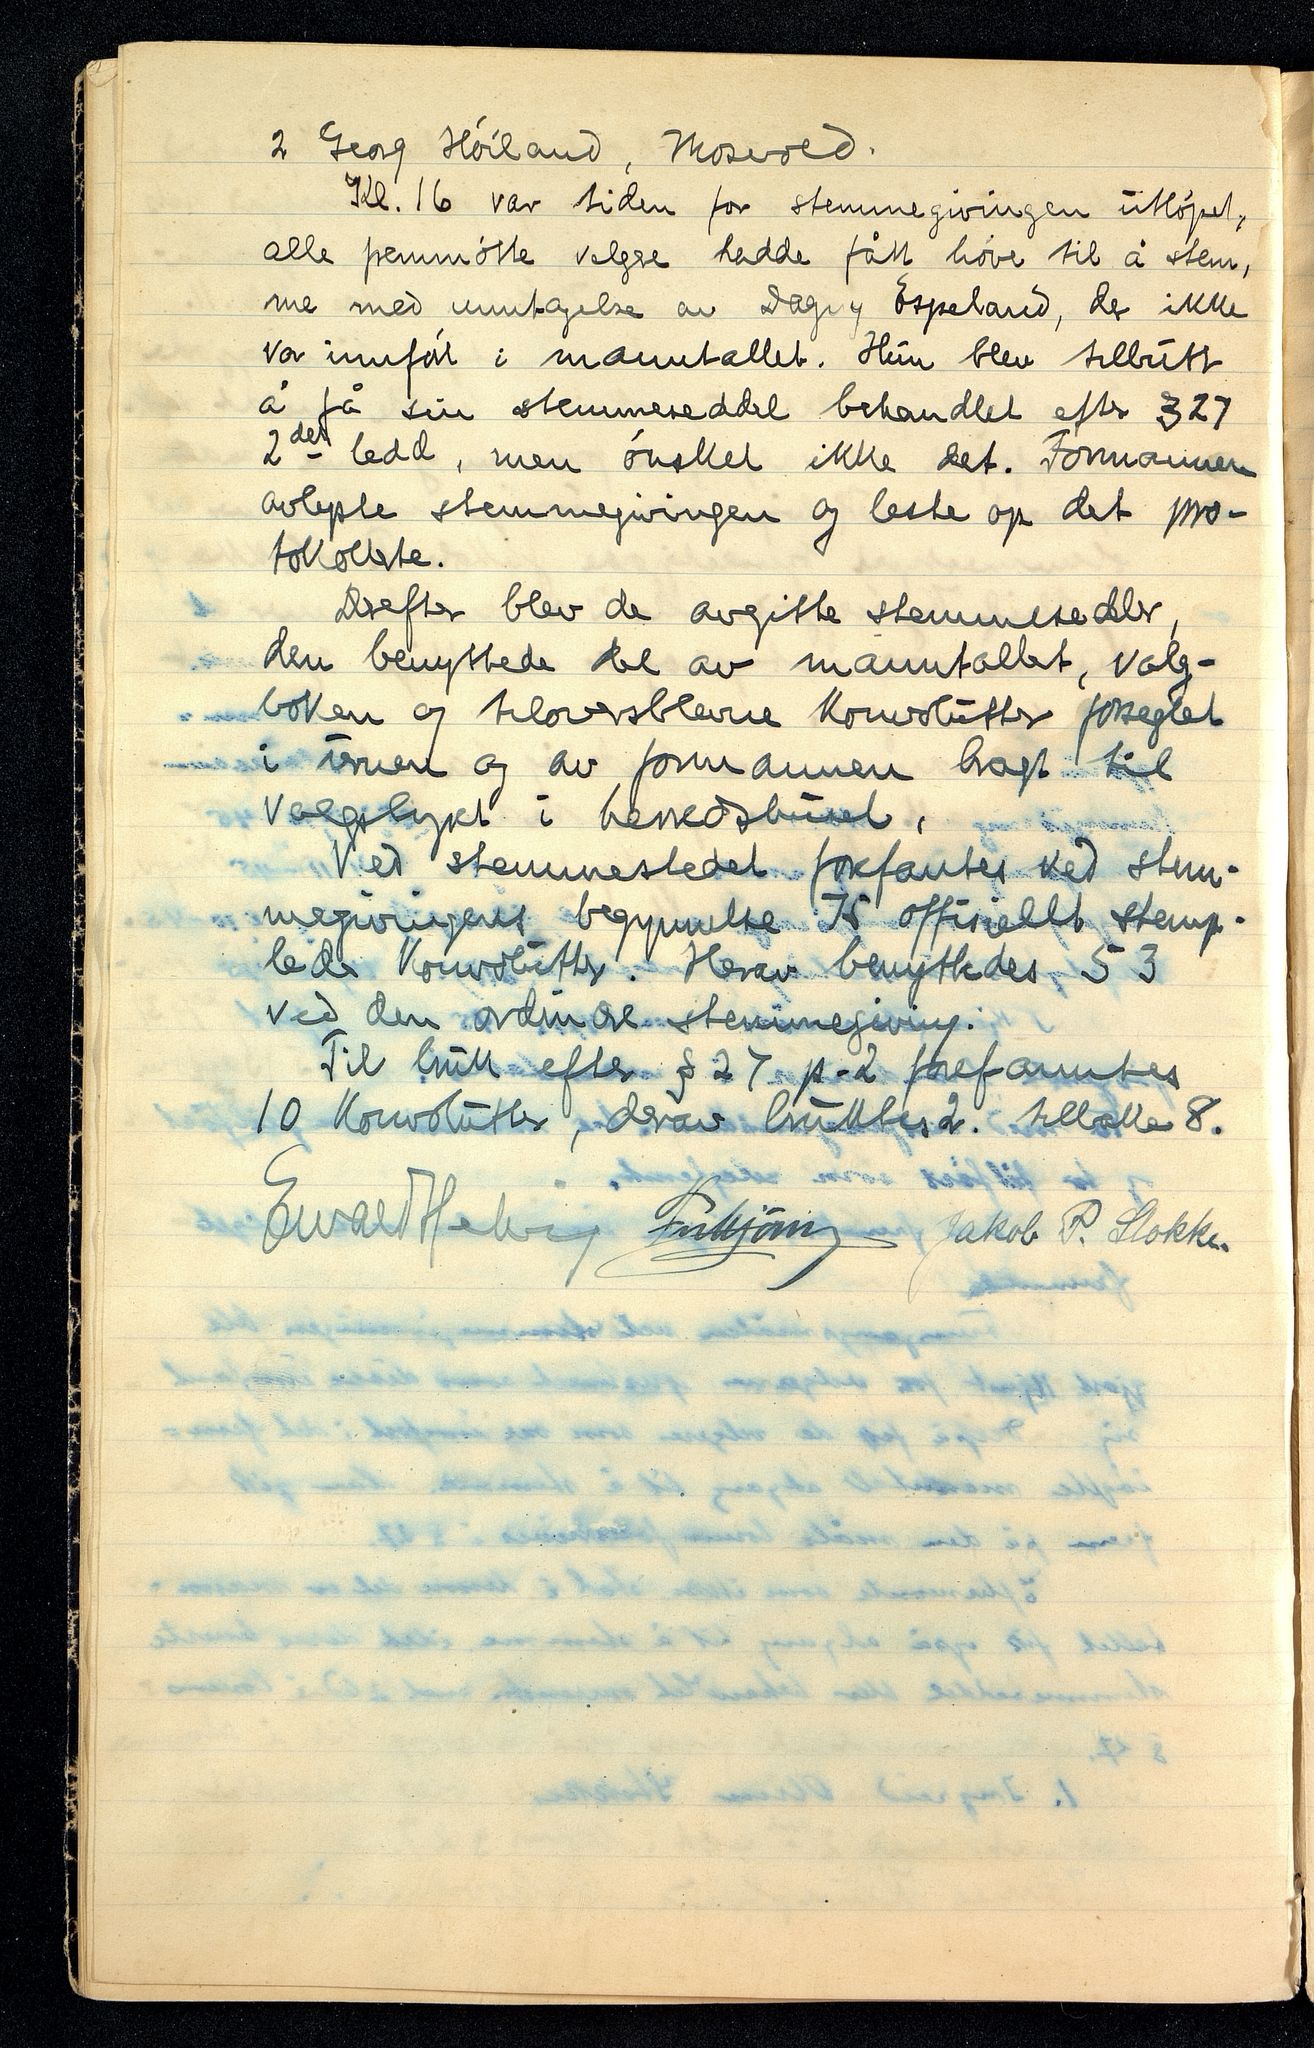 2 Georg Höiland, Mosvold.
Kl. 16 var tiden for stemmegivingen utlöpet,
alle fremmötte velgre hadde fått höve til å stem,
me med unntagelse av Dagny Espeland, der ikke
var innfört i manntallet. Hun blev tilbutt
å få sin stemmeseddel behandlet efter § 27
2det ledd, men önsket ikke det. Formannen
avlyste stemmegivingen og leste op det pro-
tokollerte.
Derefter blev de avgitte stemmesedler,
den benyttede del av manntallet, valg-
boken og tiloversblevne konvolutter forseglet
i urnen og av formannen bragt til
valgstyret i herredshuset,
Ved stemmestedet forefantes ved stem-
megivingens begynnelse 75 offisiellt stemp-
lede konvolutter. Herav benyttedes 53
ved den ordinære stemmegiving.
Til bruk efter § 27 p-2 forefanntes
10 konvolutter, derav bruktes 2. tilbake 8.
Ewald Jakob P. Stokke.